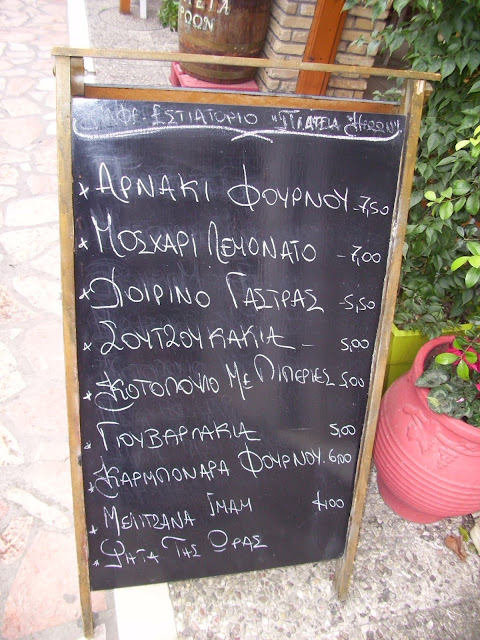 ΕΣΤΙΑΤΟΡΙΟ "ΠΛΑΤΕΙΑ ΗΡΩΩΝ"
ΑΡΝΑΚΙ ΦΟΥΡΝΟΥ -7,50
ΜΟΣΧΑΡΙ ΛΕΜΟΝΑΤΟ -7,00
ΧΟΙΡΙΝΟ ΓΑΣΤΡΑΣ -5,50
ΣΟΥΤΖΟΥΚΑΚΙΑ - 5,00
ΚΟΤΟΠΟΥΛΟ ΜΕ ΠΙΠΕΡΙΕΣ 5,00
ΓΙΟΥΒΑΡΛΑΚΙΑ 5,00
ΚΑΡΜΠΟΝΑΡΑ ΦΟΥΡΝΟΥ. 6,00
ΜΕΛΙΤΖΑΝΑ ΙΜΑΜ
ΨΗΤΑ ΤΗΣ ΩΡΑΣ